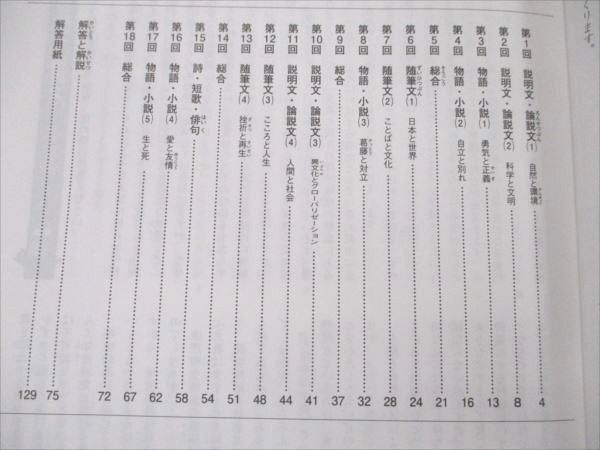 くります。
第1回 説明文・論説文(1) 自然と環境 4
第2回 説明文・論説文(2) 科学と文明 8
第3回 物語・小説(1) 勇気と正義 13
第4回 物語・小説(2) 自立と別れ 16
第5回 総合 21
第6回 随筆文(1) 日本と世界 24
第7回 随筆文(2) ことばと文化 28
第8回 物語・小説(3) 葛藤と対立 32
第9回 総合 37
第10回 説明文・論説文(3) 異文化とグローバリゼーション 41
第11回 説明文・論説文(4) 人間と社会 44
第12回 随筆文(3) こころと人生 48
第13回 随筆文(4) 挫折と再生 51
第14回 総合 54
第15回 詩・短歌・俳句 58
第16回 物語・小説(4) 愛と友情 62
第17回 物語・小説(5) 生と死 67
第18回 総合 72
解答と解説 75
解答用紙 129